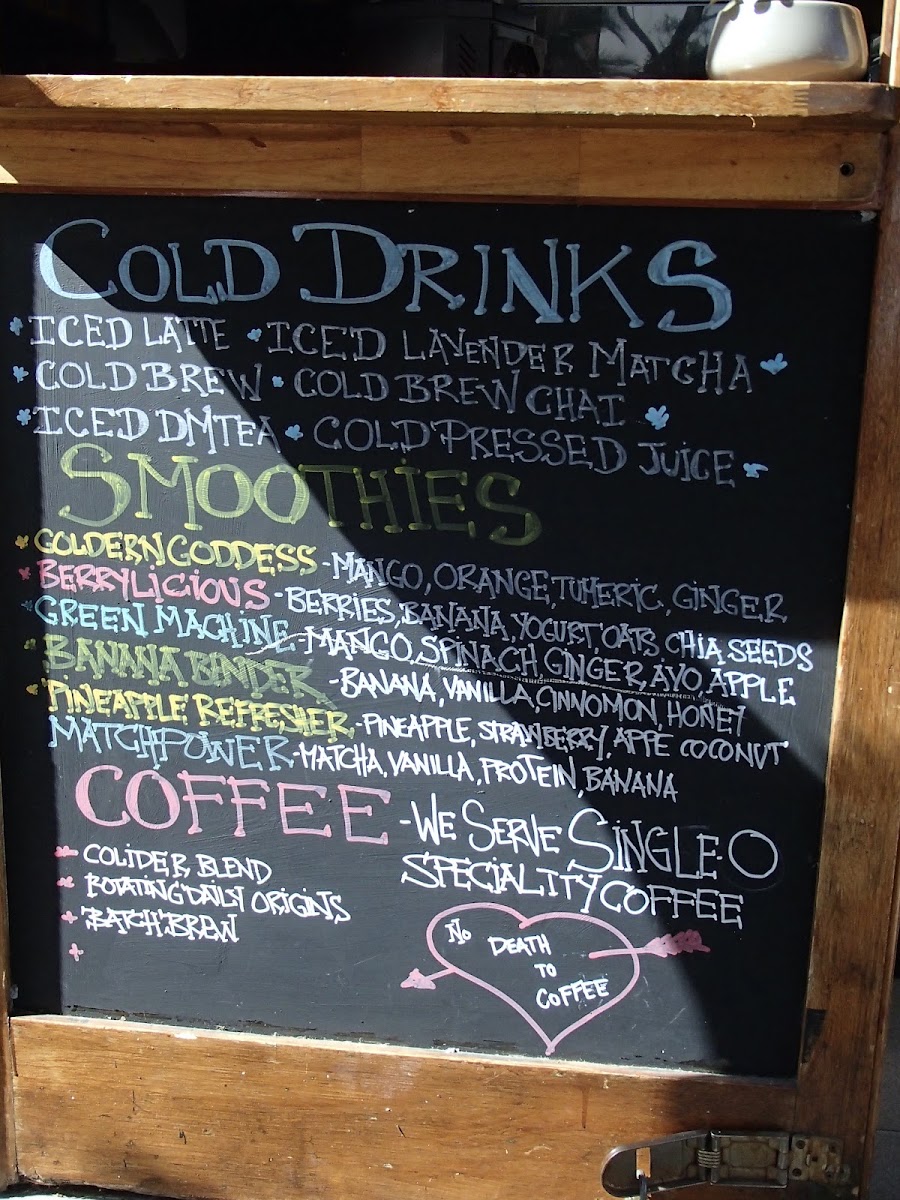 COLD DRINKS
ICED LATTE ICED LAVENDER MATCHA
COLD BREW COLD BREW CHAI
ICED DMTEA COLD PRESSED JUICE
SMOOTHIES
GOLDERN GODDESS - MANGO, ORANGE, TUMERIC, GINGER
BERRYLICIOUS - BERRIES, BANANA, YOGURT, OATS CHIA SEEDS
GREEN MACHINE - MANGO, SPINACH, GINGER, AVO, APPLE
BANANA BENDER - BANANA, VANILLA, CINNOMON, HONEY
PINEAPPLE REFRESHER - PINEAPPLE, STRAWBERRY, APPE COCONUT
MATCHPOWER - MATCHA, VANILLA, PROTEIN, BANANA
COFFEE - WE SERVE SINGLE-O
SPECIALITY COFFEE
COLIDER BLEND
ROTATING DAILY ORIGINS
BATCH BREW
NO DEATH
TO
COFFEE